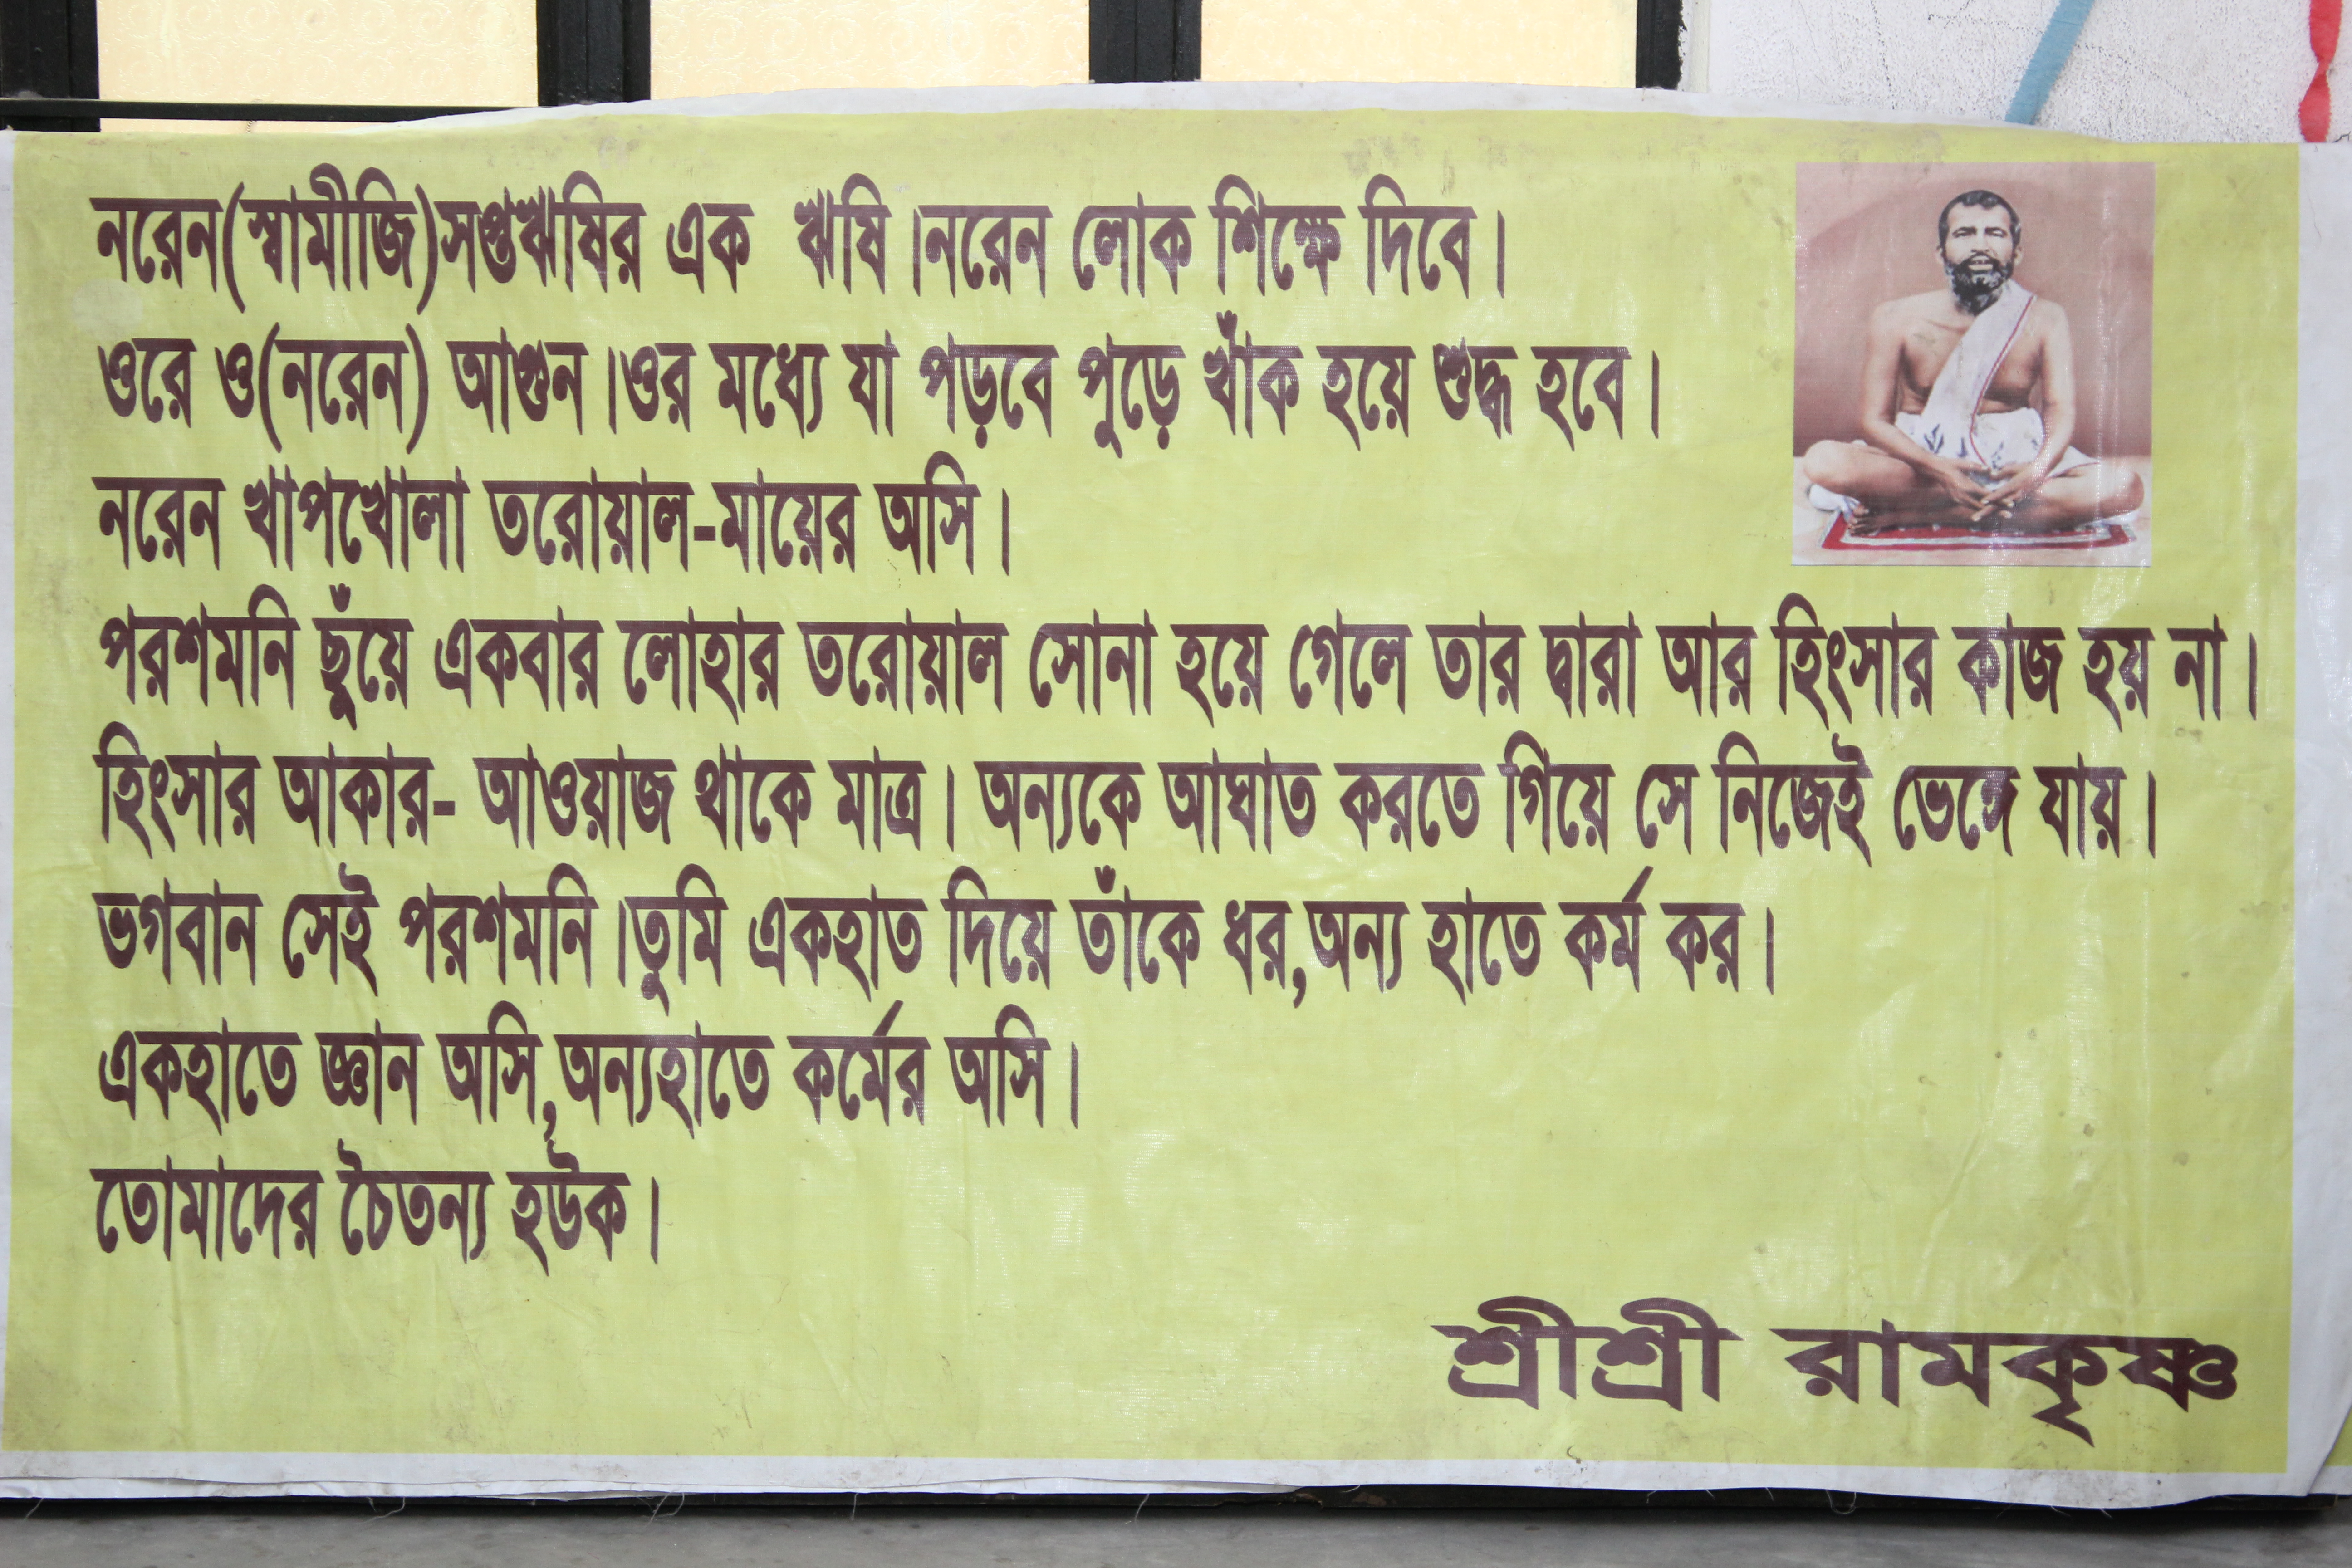 নরেন(স্বামীজি)সপ্তঋষির এক ঋষি।নরেন লোক শিক্ষে দিবে।
ওরে ও(নরেন) আগুন।ওর মধ্যে যা পড়বে পুড়ে খাঁক হয়ে শুদ্ধ হবে।
নরেন খাপখোলা তরোয়াল-মায়ের অসি।
পরশমনি ছুঁয়ে একবার লোহার তরোয়াল সোনা হয়ে গেলে তার দ্বারা আর হিংসার কাজ হয় না।
হিংসার আকার- আওয়াজ থাকে মাত্র। অন্যকে আঘাত করতে গিয়ে সে নিজেই ভেঙ্গে যায়।
ভগবান সেই পরশমনি।তুমি একহাত দিয়ে তাঁকে ধর,অন্য হাতে কর্ম কর।
একহাতে জ্ঞান অসি,অন্যহাতে কর্মের অসি।
তোমাদের চৈতন্য হউক।
শ্রীশ্রী রামকৃষ্ণ